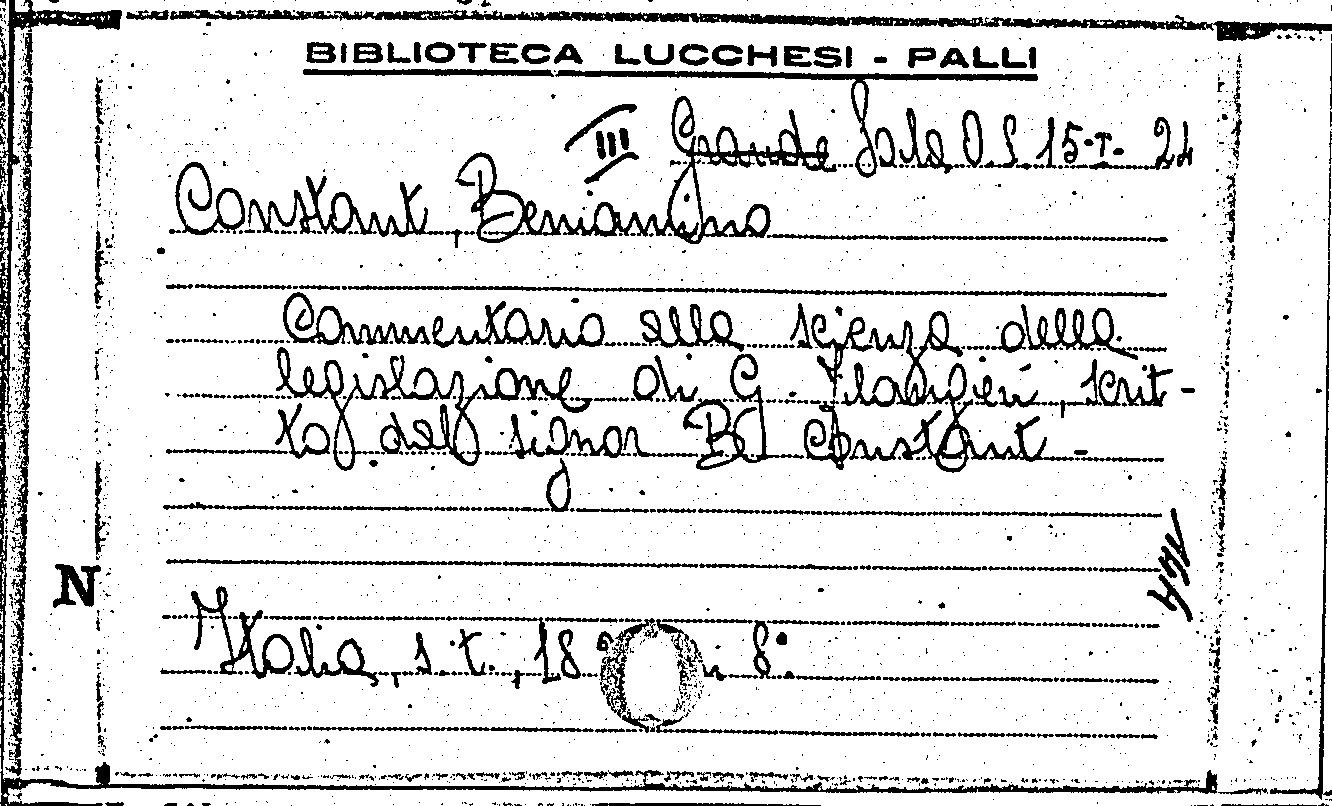 BIBLIOTECA LUCCHESI - PALLI
III Grande Sala O. S. 15-I- 24
Constant, Beniamino
Commentario alla scienza della
legislazione di G. Filangieri, scrit-
to dal signor B. Constant -
N
Italia, s. t., 18 in 8°.